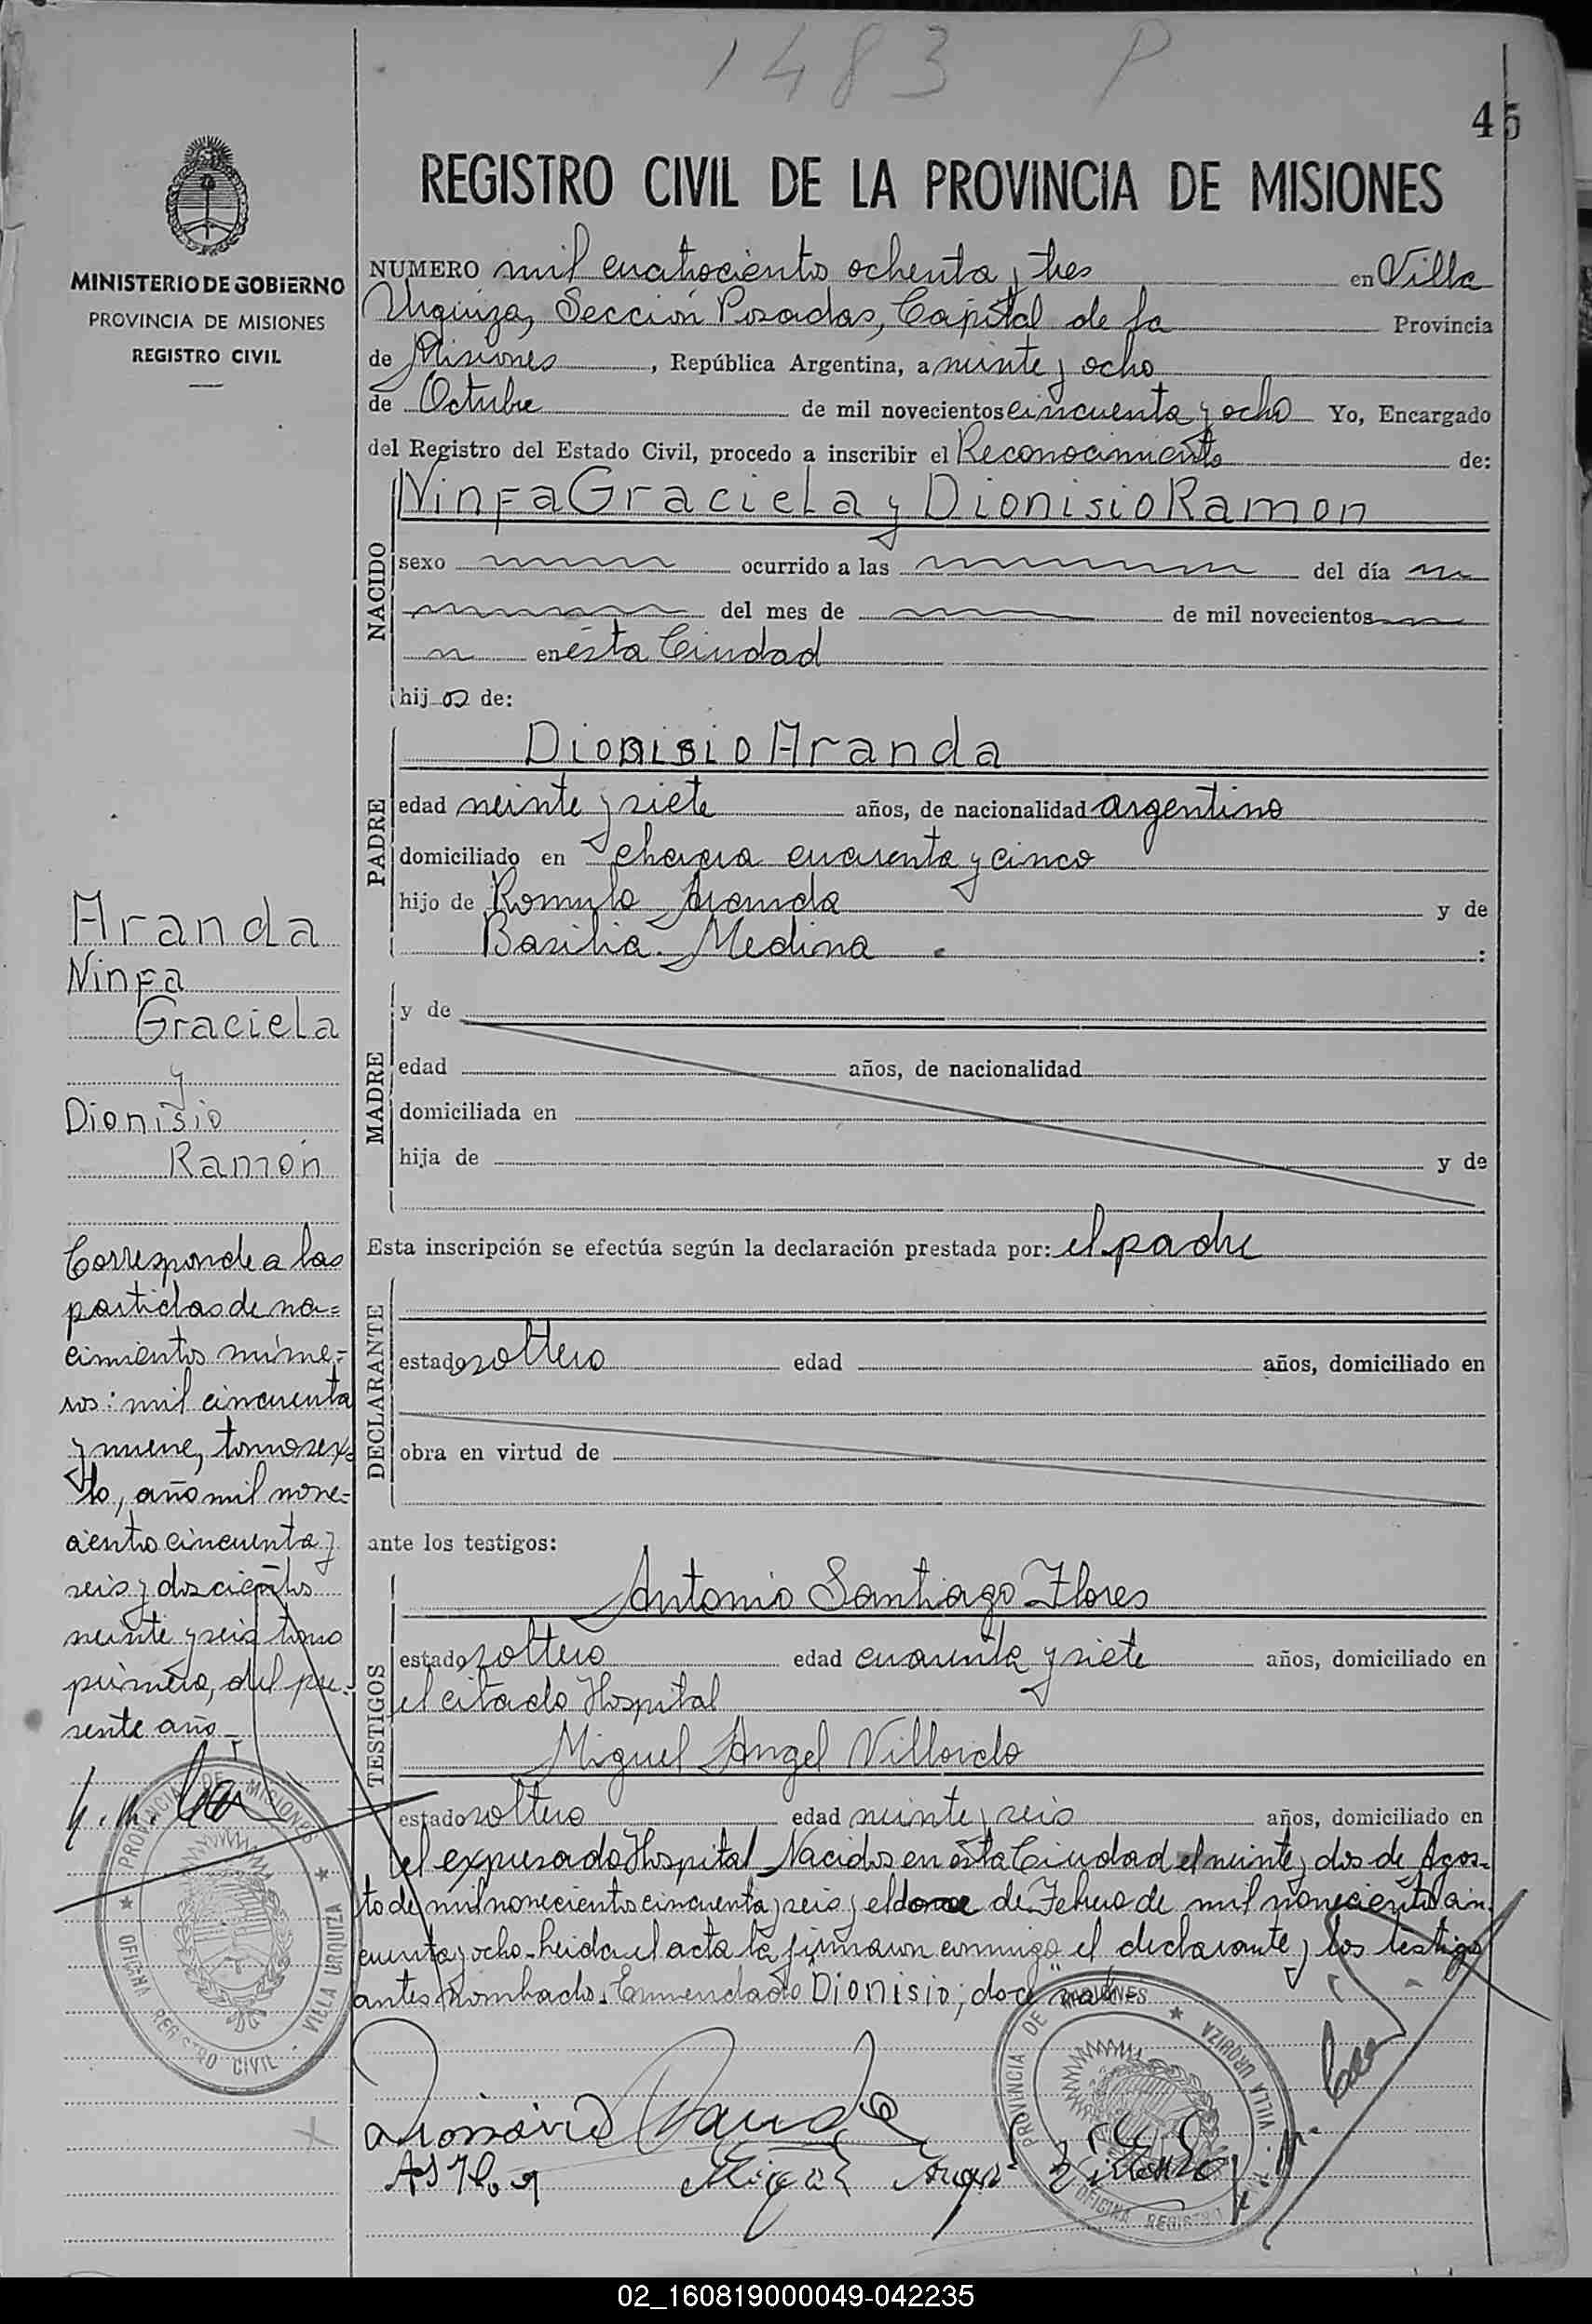 1483 P
45
MINISTERIO DE GOBIERNO
PROVINCIA DE MISIONES
REGISTRO CIVIL
REGISTRO CIVIL DE LA PROVINCIA DE MISIONES
NUMERO mil cuatrocientos ochenta y tres en Villa
Urquiza, Sección Posadas, Capital de la Provincia
de Misiones, República Argentina, a veinte y ocho
de Octubre de mil novecientos cincuenta y ocho Yo, Encargado
del Registro del Estado Civil, procedo a inscribir el Reconocimiento de:
NACIDO
Ninfa Graciela y Dionisio Ramon
sexo ocurrido a las del día
del mes de de mil novecientos
en ésta Ciudad
hijos de:
PADRE
Dionisio Aranda
edad veinte y siete años, de nacionalidad argentino
domiciliado en chacra cuarenta y cinco
hijo de Romulo Aranda y de
Basilia Medina :
MADRE
y de
edad años, de nacionalidad
domiciliada en
hija de y de
Esta inscripción se efectúa según la declaración prestada por: el padre
DECLARANTE
estado soltero edad años, domiciliado en
obra en virtud de
ante los testigos:
TESTIGOS
Antonio Santiago Flores
estado soltero edad cuarenta y siete años, domiciliado en
el citado Hospital
Miguel Angel Villordo
estado soltero edad veinte y seis años, domiciliado en
el expresado Hospital Nacidos en ésta Ciudad el veinte y dos de Agos-
to de mil novecientos cincuenta y seis y el doce de Febrero de mil novecientos cin
cuenta y ocho - Leida el acta la firmaron conmigo el declarante y los testigos
antes nombrados. Enmendado Dionisio; doce vale
Aranda
Ninfa
Graciela
y
Dionisio
Ramón
Corresponde a las
partidas de na=
cimientos núme=
ros: mil cincuenta
y nueve, tomo sex-
to, año mil nove-
cientos cincuenta y
seis y doscientos
veinte y seis tomo
primero, del pre-
sente año
PROVINCIA DE MISIONES
OFICINA REGISTRO CIVIL - VILLA URQUIZA
Dionisio Aranda
Miguel Angel Villordo
PROVINCIA DE MISIONES
VILLA URQUIZA
OFICINA REGISTRO
02_160819000049-042235